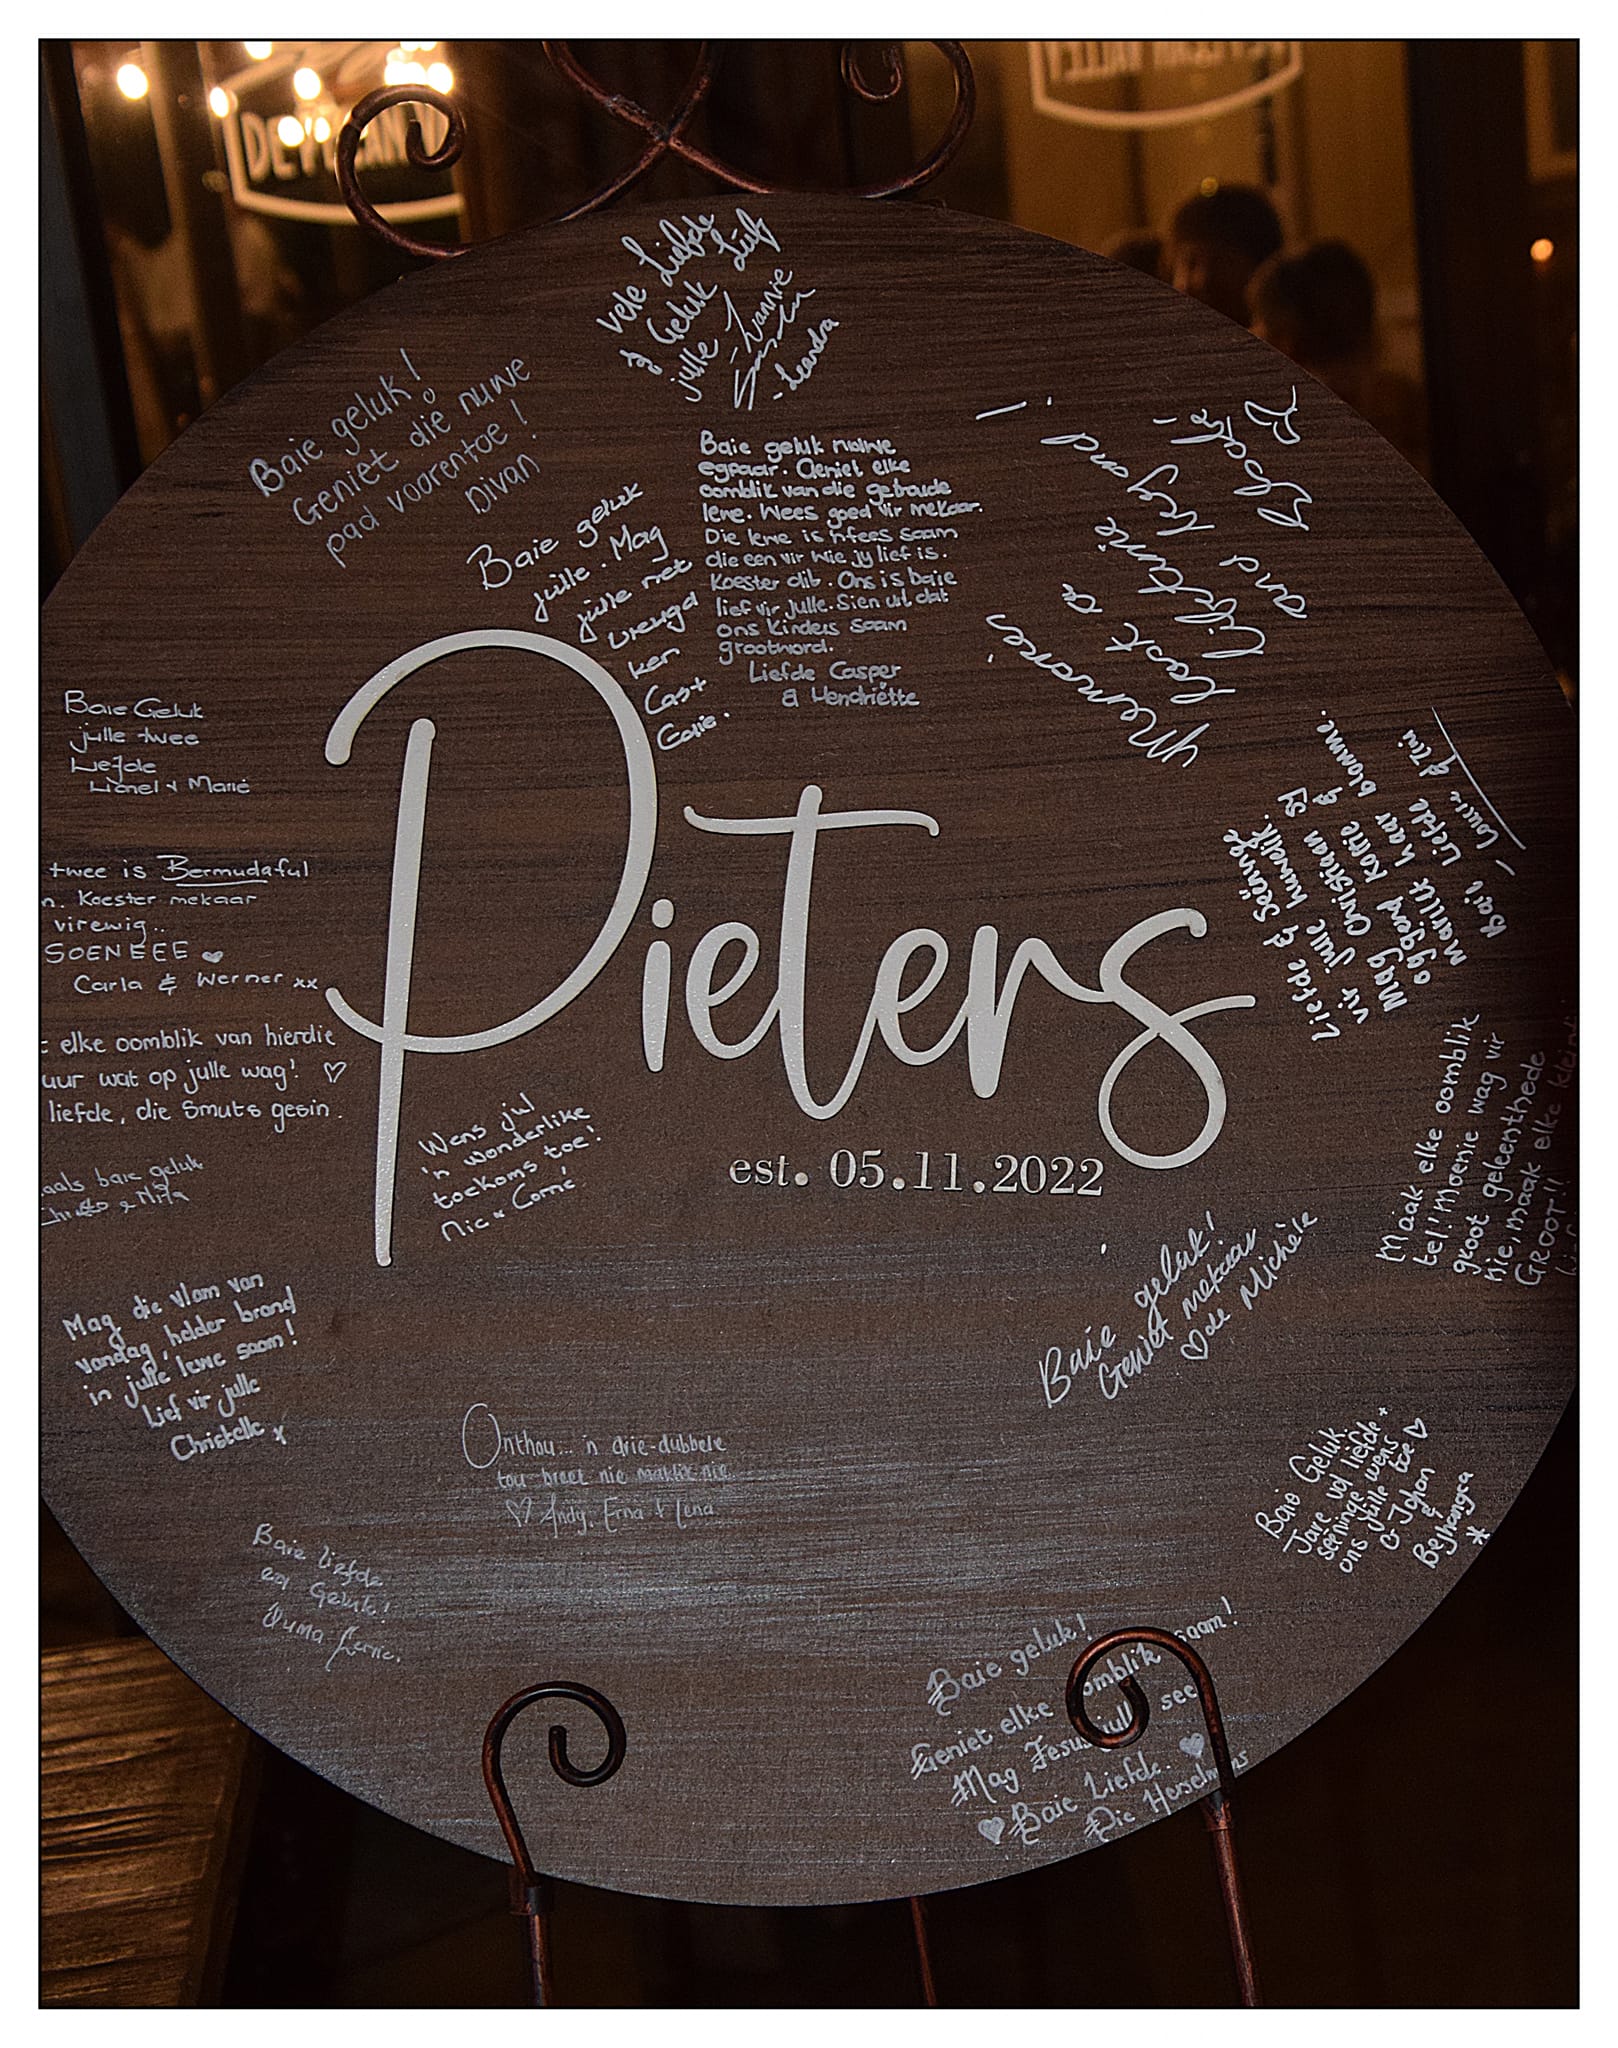 Vele Liefde
& Geluk
julle
Lief
Lannie
-Leandra
Baie geluk!
Geniet die nuwe
pad voorentoe!
Divan
Baie geluk
julle. Mag
julle net
vreugd
ken
Cas+
Baie geluk nuwe
egpaar. Geniet elke
oomblik van die getroude
lewe. Wees goed vir mekaar.
Die lewe is 'n fees saam
die een vir wie jy lief is.
Koester dit. Ons is baie
lief vir julle. Sien uit dat
ons kinders saam
grootword.
Liefde Casper
& Hendriëtte
Memories
last a
lifetime
and beyond
Baie Geluk
julle twee
Liefde
Lionel + Marié
twee is Bermudaful
n. Koester mekaar
virewig..
SOENEEE
Carla & Werner xx
elke oomblik van hierdie
uur wat op julle wag!
liefde, die Smuts gesin.
baie geluk
& Nita
Pieters
est. 05.11.2022
Liefde & Seëninge
vir julle huwelik.
Mag Christiaan sy
oggend koffie &
Marilie haar blomme.
Baie Liefde
Maak elke oomblik
tel! Moenie wag vir
groot geleenthede
nie, maak elke
GROOT!!
Wens jul
'n wonderlike
toekoms toe!
Nic & Corné
Mag die vlam van
vandag, helder brand
in julle lewe saam!
Lief vir julle
Christelle x
Baie geluk!
Geniet mekaar
de Michèle
Onthou... 'n drie-dubbele
tou breek nie maklik nie
Andy, Erna + Lena
Baie Geluk.
Jare vol liefde +
seëninge wens
ons julle toe
Johan
&
Baie liefde
en Geluk!
Ouma
Baie geluk!
Geniet elke oomblik saam!
Mag Jesus julle seën
Baie Liefde.
Die